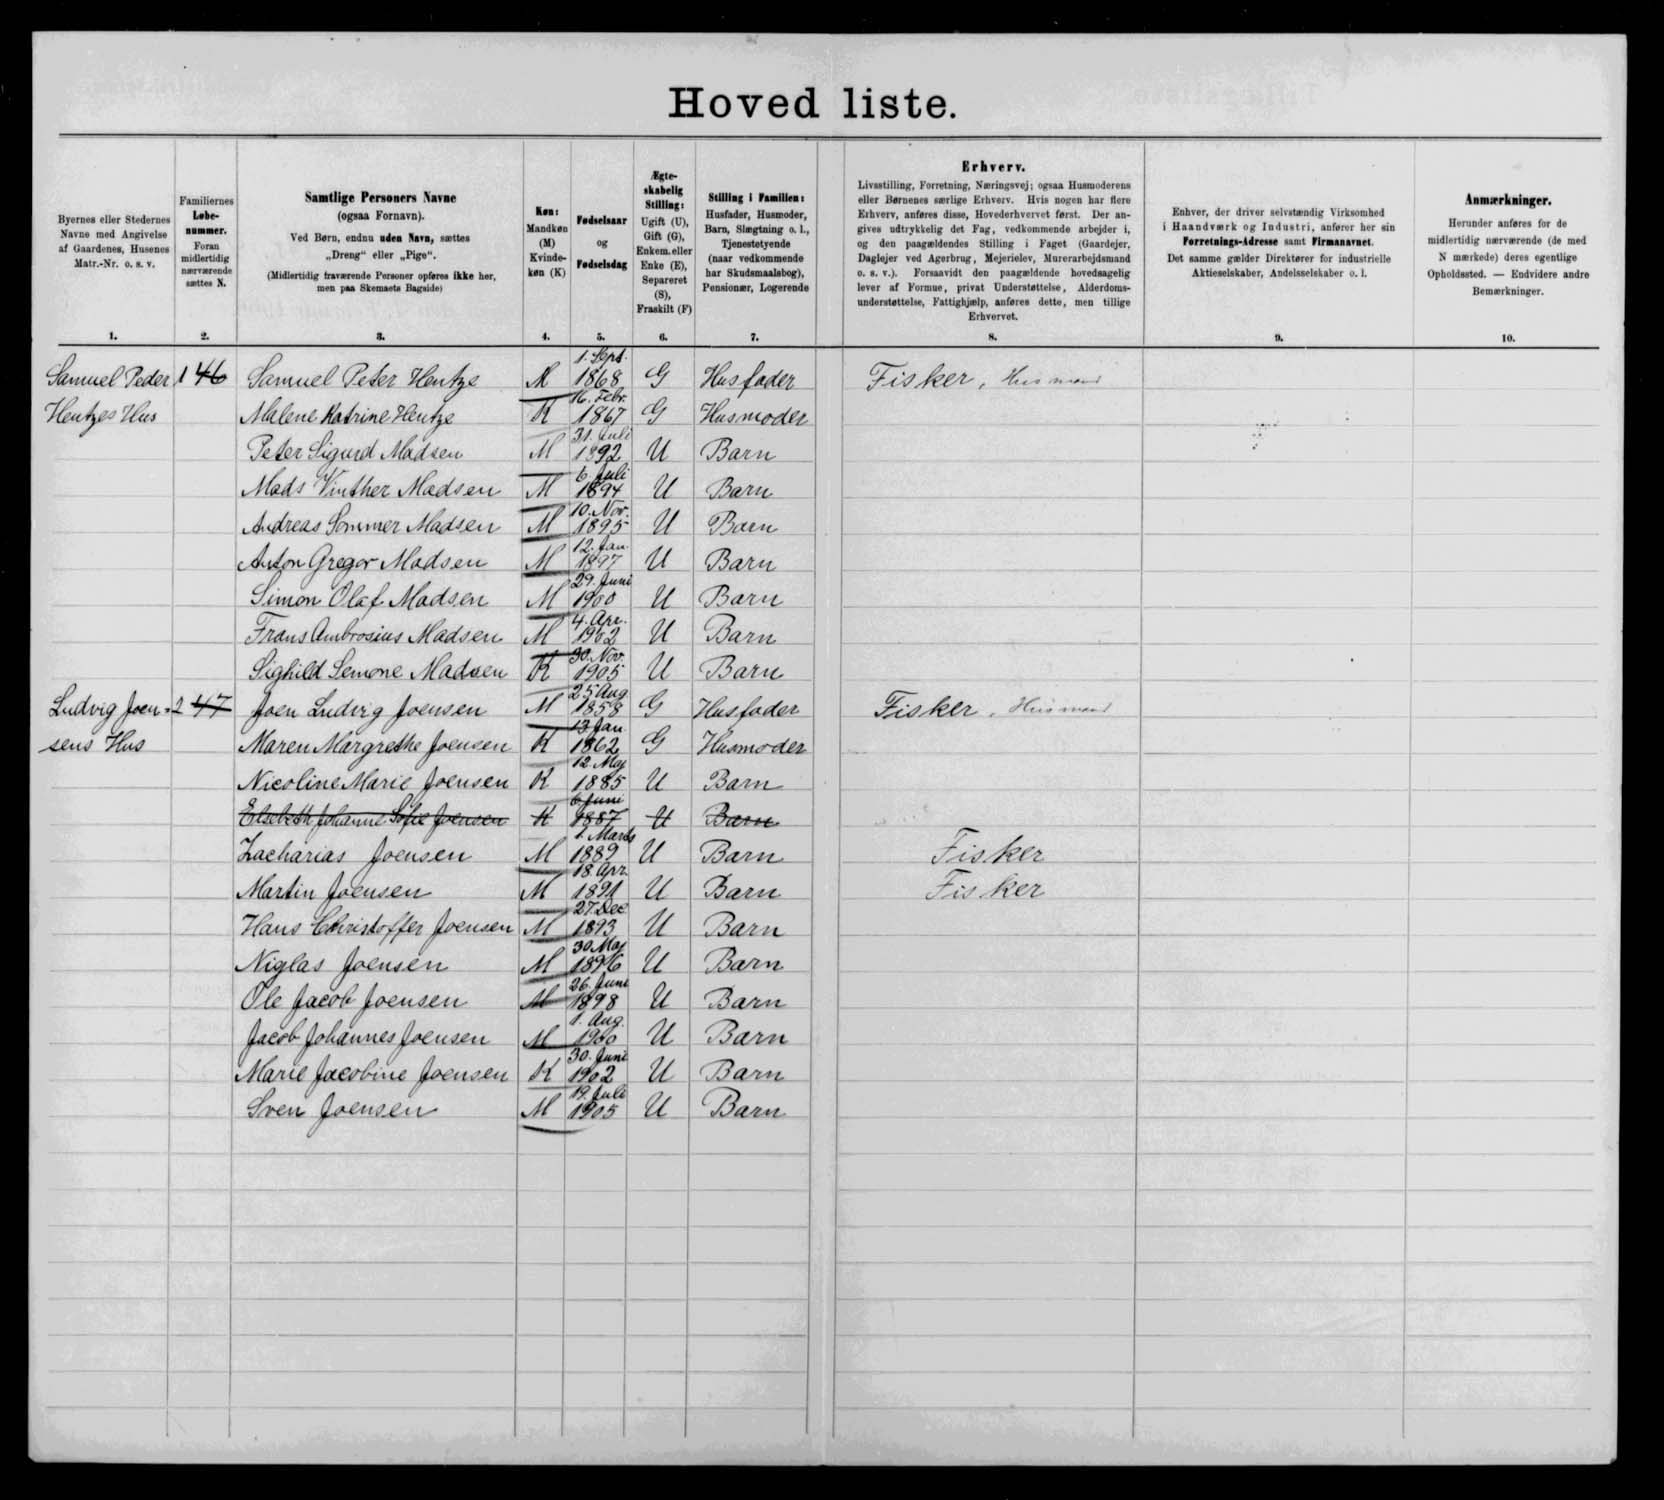 Hoved liste.
Byernes eller Stedernes
Navne med Angivelse
af Gaardenes, Husenes
Matr.-Nr. o. s. v.
1.
Familiernes
Løbe-
nummer.
Foran
midlertidig
nærværende
sættes N.
2.
Samtlige Personers Navne
(ogsaa Fornavn).
Ved Børn, endnu uden Navn, sættes
„Dreng“ eller „Pige“.
(Midlertidig fraværende Personer opføres ikke her,
men paa Skemaets Bagside)
3.
Køn:
Mandkøn
(M)
Kvinde-
køn (K)
4.
Fødselsaar
og
Fødselsdag
5.
Ægte-
skabelig
Stilling:
Ugift (U),
Gift (G),
Enkem. eller
Enke (E),
Separeret
(S),
Fraskilt (F)
6.
Stilling i Familien:
Husfader, Husmoder,
Barn, Slægtning o. l.,
Tjenestetyende
(naar vedkommende
har Skudsmaalsbog),
Pensionær, Logerende
7.
Erhverv.
Livsstilling, Forretning, Næringsvej; ogsaa Husmoderens
eller Børnenes særlige Erhverv. Hvis nogen har flere
Erhverv, anføres disse, Hovederhvervet først. Der an-
gives udtrykkelig det Fag, vedkommende arbejder i,
og den paagældendes Stilling i Faget (Gaardejer,
Daglejer ved Agerbrug, Mejerielev, Murerarbejdsmand
o. s. v.). Forsaavidt den paagældende hovedsagelig
lever af Formue, privat Understøttelse, Alderdoms-
understøttelse, Fattighjælp, anføres dette, men tillige
Erhvervet.
8.
Enhver, der driver selvstændig Virksomhed
i Haandværk og Industri, anfører her sin
Forretnings-Adresse samt Firmanavnet.
Det samme gælder Direktører for industrielle
Aktieselskaber, Andelsselskaber o. l.
9.
Anmærkninger.
Herunder anføres for de
midlertidig nærværende (de med
N mærkede) deres egentlige
Opholdssted. — Endvidere andre
Bemærkninger.
10.
Samuel Peder 1 46 Samuel Peter Hentze M 1. Sept. 1868 G Husfader Fisker, Husmand
Hentzes Hus Malene Katrine Hentze K 16. Febr. 1867 G Husmoder
Peter Sigurd Madsen M 31. Juli 1892 U Barn
Mads Vinther Madsen M 6. Juli 1894 U Barn
Andreas Sommer Madsen M 10. Nov. 1895 U Barn
Anton Gregor Madsen M 12. Jan. 1897 U Barn
Simon Olaf Madsen M 29. Juni 1900 U Barn
Frans Ambrosius Madsen M 4. Apr. 1902 U Barn
Sighild Semone Madsen K 30. Nov. 1905 U Barn
Ludvig Joen- 2 47 Joen Ludvig Joensen M 25 Aug 1858 G Husfader Fisker, Husmand
sens Hus Maren Margrethe Joensen K 13 Jan 1862 G Husmoder
Nicoline Marie Joensen K 12. Maj 1885 U Barn
Elsebeth Johanne Sofie Joensen K 6 Juni 1887 U Barn
Zacharias Joensen M 1. Marts 1889 U Barn Fisker
Martin Joensen M 18 Apr. 1891 U Barn Fisker
Hans Christoffer Joensen M 27. Dec 1893 U Barn
Niglas Joensen M 30. Maj 1896 U Barn
Ole Jacob Joensen M 26. Juni 1898 U Barn
Jacob Johannes Joensen M 1. Aug. 1900 U Barn
Marie Jacobine Joensen K 30. Juni 1902 U Barn
Sven Joensen M 19. Juli 1905 U Barn